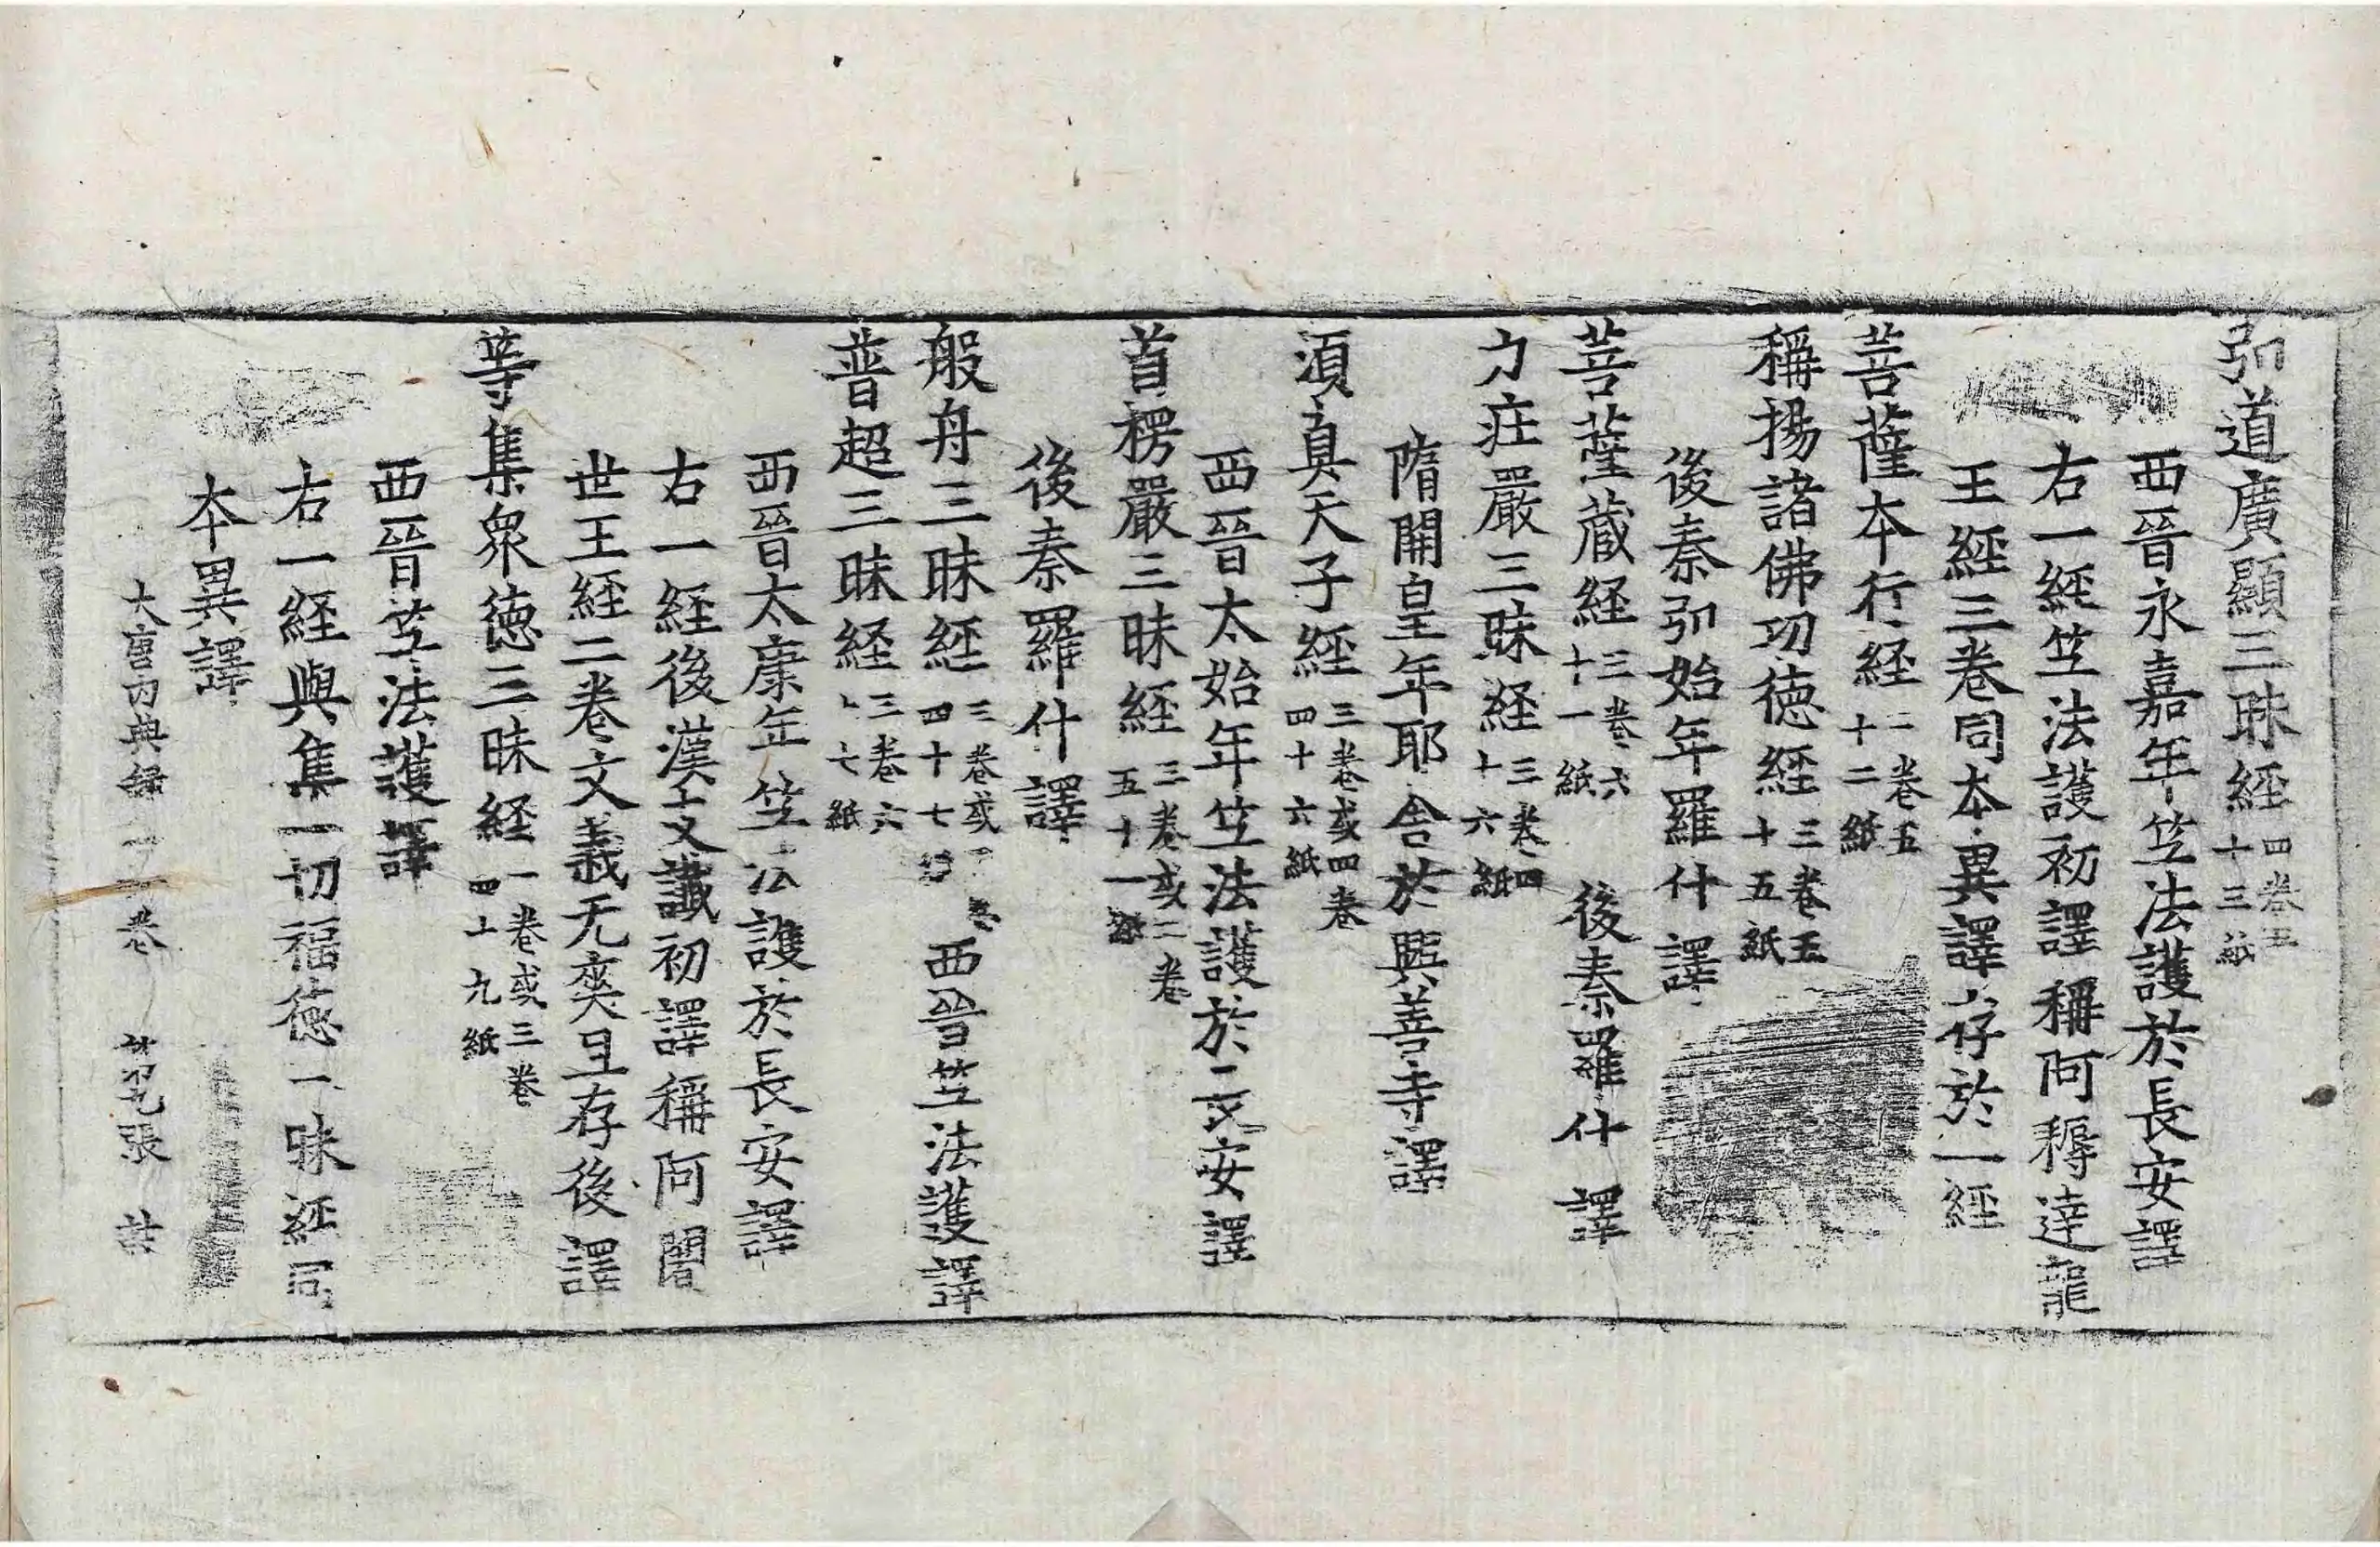 弘道廣顯三昧經四卷五十三紙
西晉永嘉年竺法護於長安譯
右一經竺法護初譯稱阿耨達龍
王經三卷同本異譯存於一經
菩薩本行経二卷五十二紙
稱揚諸佛功德經三卷五十五紙
後秦弘始年羅什譯
菩薩蔵経三卷六十一紙 後秦羅什譯
力庄嚴三昧経三卷四十六紙
隋開皇年耶舎於興善寺譯
湏真天子經三卷或四卷四十六紙
西晉太始年竺法護於長安譯
首楞嚴三昧經三卷或二卷五十一紙
後秦羅什譯
般舟三昧經三卷或卷四十七紙 西晉竺法護譯
普超三昧経三卷六十七紙
西晉太康年竺法護於長安譯
右一経後漢支讖初譯稱阿闍
世王経二卷文義无爽且存後譯
等集衆德三昧経一卷或三卷四十九紙
西晉竺法護譯
右一經與集一切福德三昧経同
本異譯
大唐內典録 卷 張